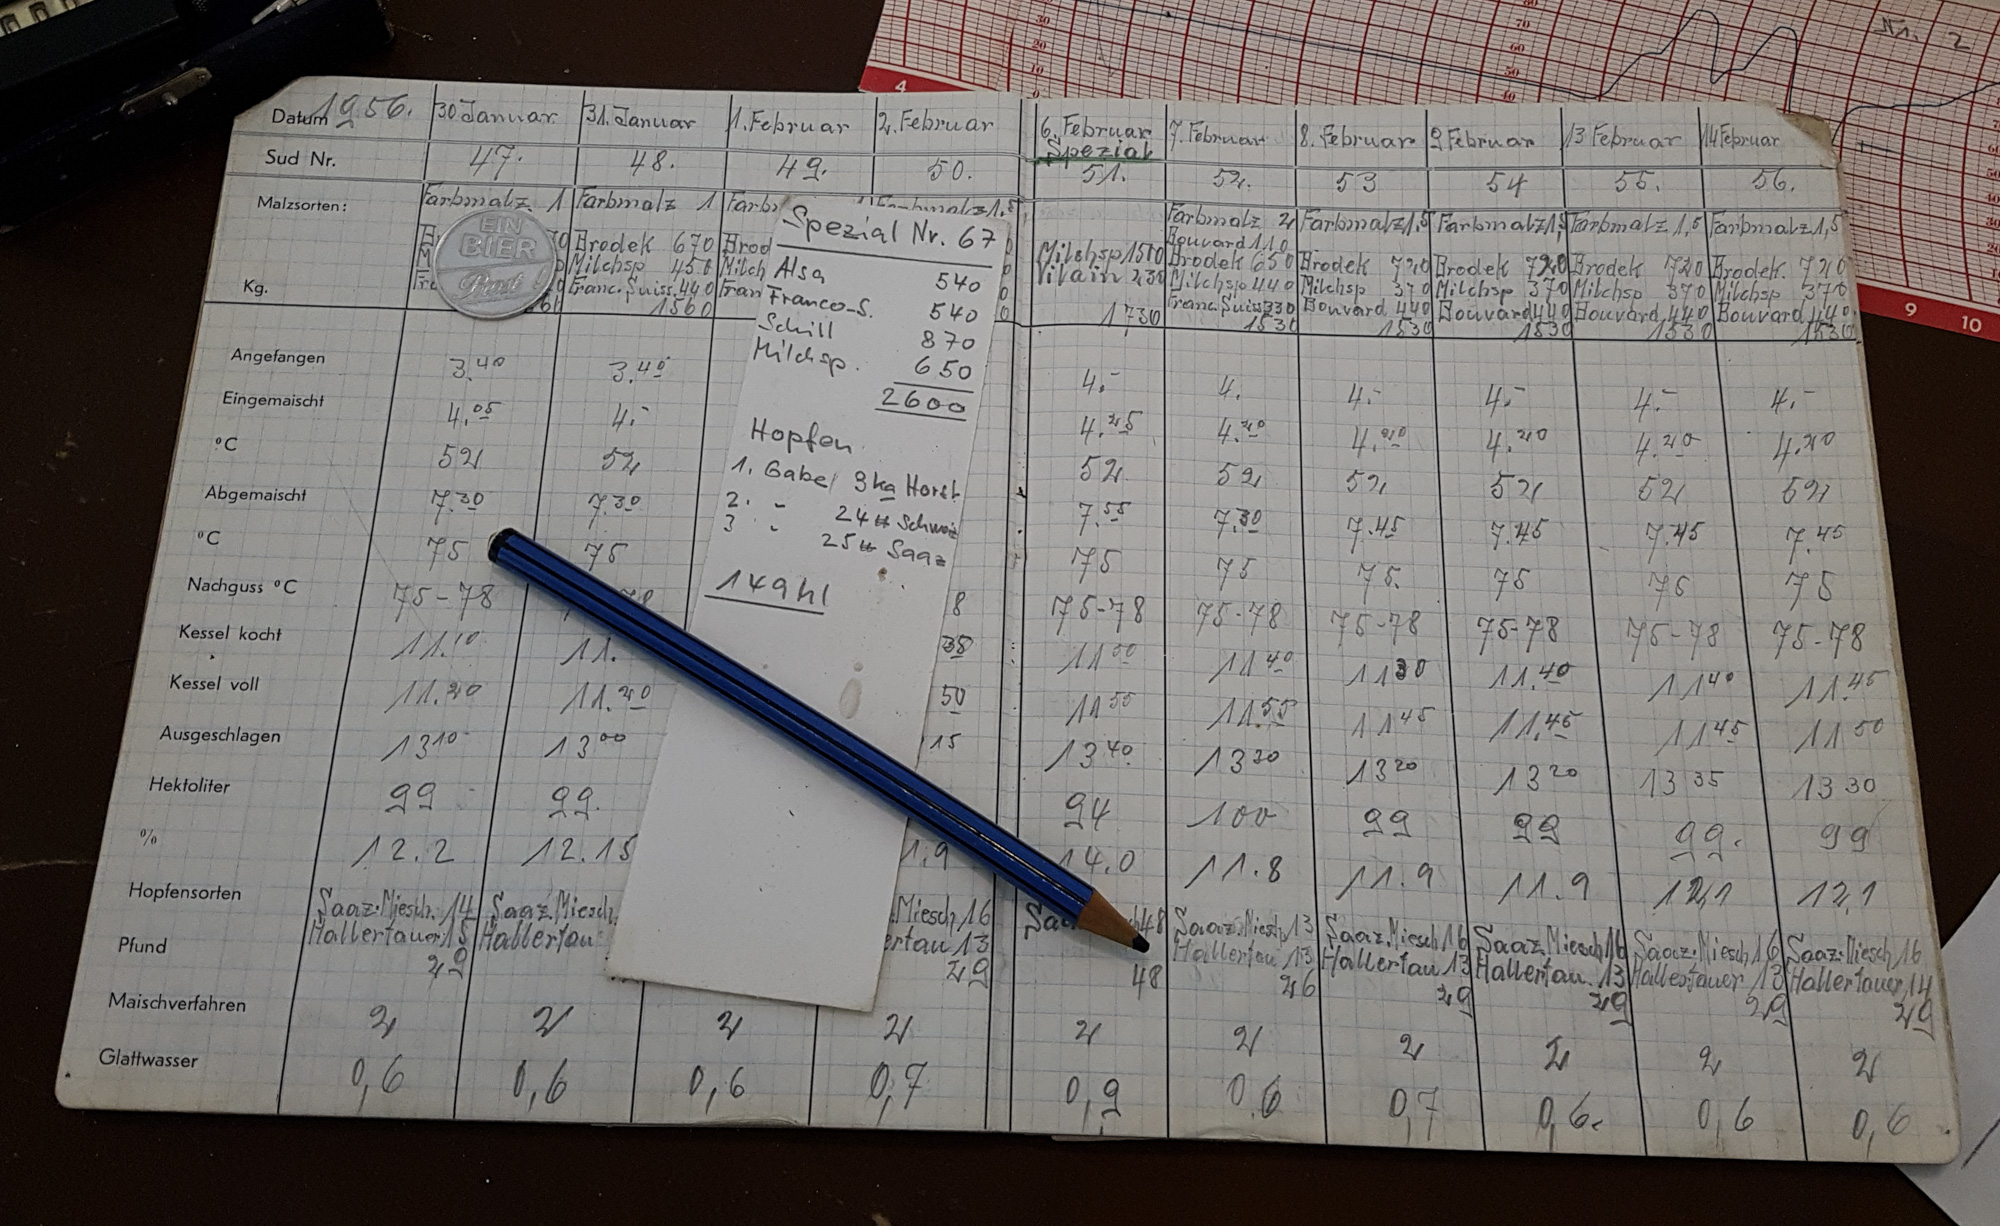 Datum 1956. 30 Januar 31. Januar 1. Februar 2. Februar 6. Februar 7. Februar 8. Februar 9 Februar 13 Februar 14 Februar
Spezial
Sud Nr. 47. 48. 49. 50. 51. 52. 53 54 55. 56.
Malzsorten: Farbmalz 1 Farbmalz 1 Farbmalz 2 Farbmalz 1,5 Farbmalz 1,5 Farbmalz 1,5 Farbmalz 1,5
Bouvard 110
Brodek 670 Brod Milchsp 1500 Brodek 650 Brodek 720 Brodek 720 Brodek 720 Brodek. 720
Milchsp 450 Milch Vilain 230 Milchsp 440 Milchsp 370 Milchsp 370 Milchsp 370 Milchsp 370
Kg. Franc. Suiss. 440 Fran Franc. Suiss 330 Bouvard 440 Bouvard 440 Bouvard 440 Bouvard 440
1560 1730 1530 1530 1530 1530 1530
Angefangen 3.40 3.40 4.- 4. 4.- 4.- 4.- 4.-
Eingemaischt 4.05 4.- 4.25 4.20 4.20 4.20 4.20 4.20
°C 52 52 52 52 52 52 52 52
Abgemaischt 7.30 7.30 7.55 7.30 7.45 7.45 7.45 7.45
°C 75 75 75 75 75. 75 75 75
Nachguss °C 75-78 78 8 75-78 75-78 75-78 75-78 75-78 75-78
Kessel kocht 11.10 11. 35 11 50 11 40 11 30 11.40 11 40 11.45
Kessel voll 11.20 11.20 50 11 55 11.55 11 45 11.45 11 45 11 50
Ausgeschlagen 13 10 13 00 15 13 40 13 20 13 20 13 20 13 35 13 30
Hektoliter 99 99. 94 100 99 99 99. 99
% 12.2 12.15 1.9 14.0 11.8 11.9 11.9 12,1 12,1
Hopfensorten Saaz. Miesch. 14 Saaz. Miesch. Miesch 16 Saa 48 Saaz. Miesch 13 Saaz. Miesch 16 Saaz. Miesch 16 Saaz. Miesch 16 Saaz. Miesch 16
Pfund Hallertauer 15 Hallertau ertau 13 Hallertau 13 Hallertau 13 Hallertau. 13 Hallertauer 13 Hallertauer 14
29 29 48 26 29 29 29 29
Maischverfahren 2 2 2 2 2 2 2 2 2 2
Glattwasser 0,6 0,6 0,6 0,7 0,9 0,6 0,7 0,6. 0,6 0,6
EIN
BIER
Prost!
Spezial Nr. 67
Alsa 540
Franco-S. 540
Schill 870
Milchsp. 650
2600
Hopfen
1. Gabe 9 kg Horst
2. - 24 " Schweiz
3 - 25 " Saaz
149 hl
Nr. 2
30
20
10
4
80
70
60
50
40
9
10